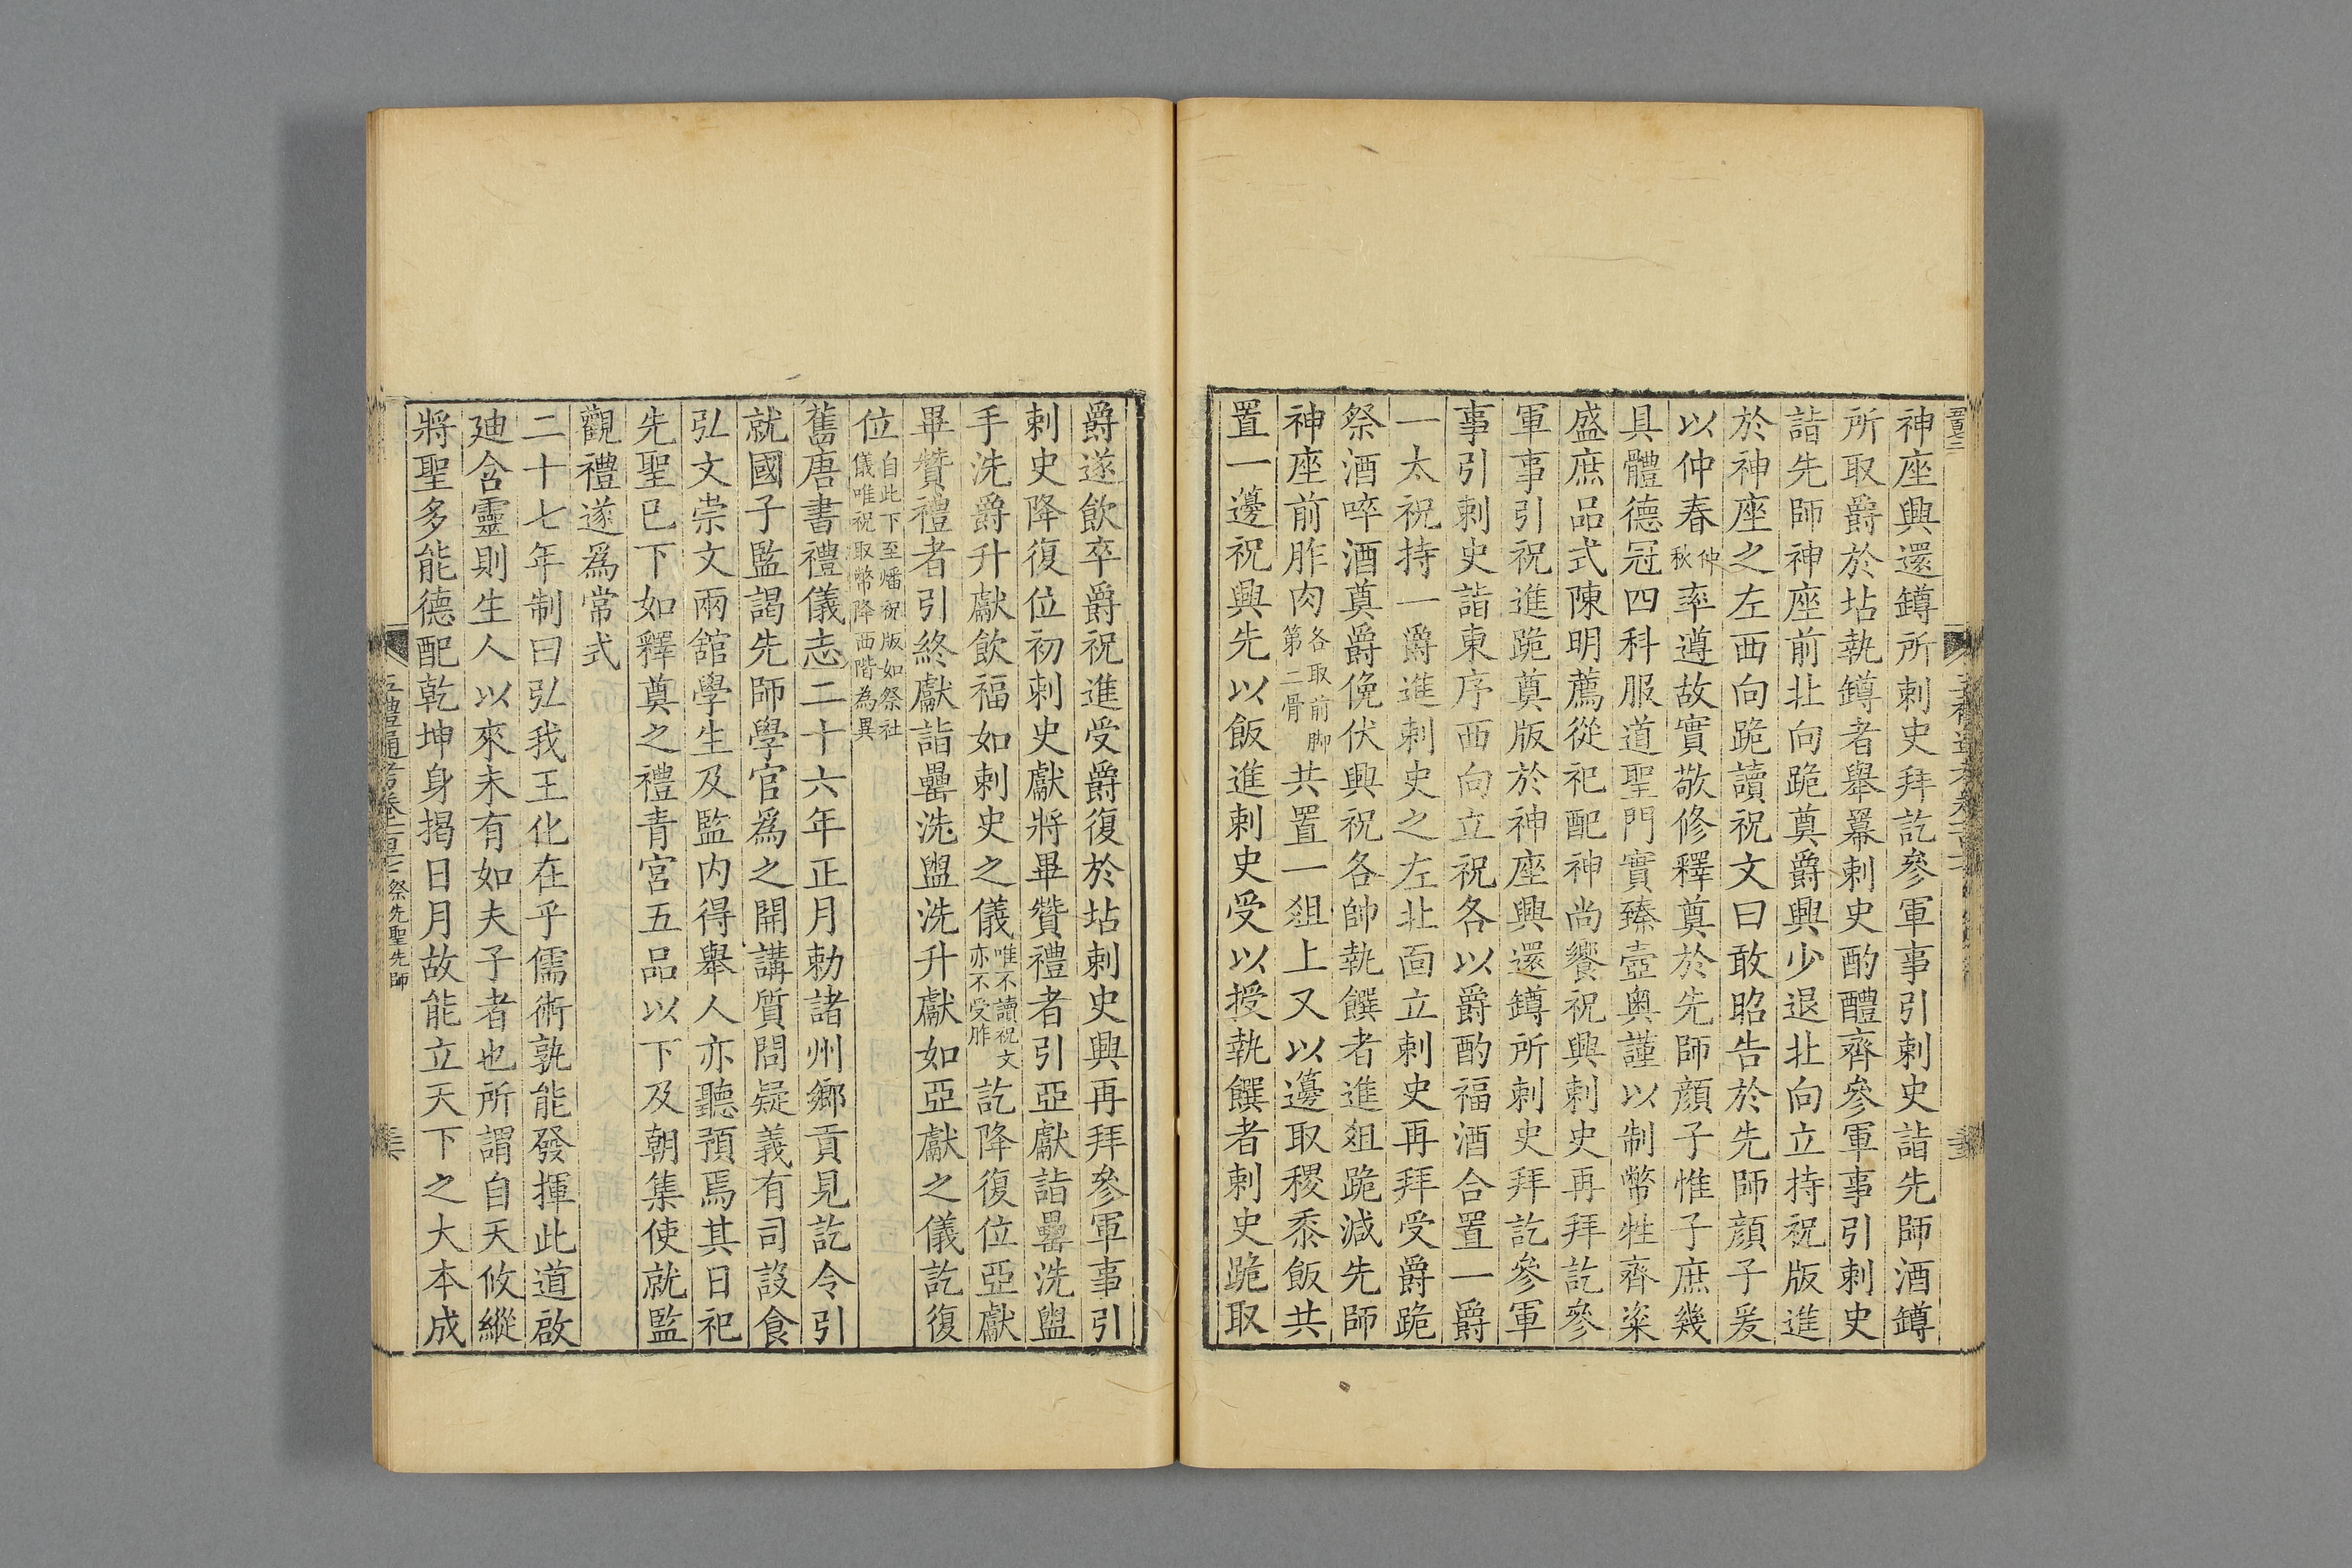 神座興還罇所刺史拜訖參軍事引刺史詣先師酒罇
所取爵於坫執罇者舉羃刺史酌醴齊參軍事引刺史
詣先師神座前北向跪奠爵興少退北向立持祝版進
於神座之左西向跪讀祝文曰敢昭告於先師顏子爰
以仲春仲秋率遵故實敬修釋奠於先師顏子惟子庶幾
具體德冠四科服道聖門實臻壼奧謹以制幣牲齊粢
盛庶品式陳明薦從祀配神尚饗祝興刺史再拜訖參
軍事引祝進跪奠版於神座興還罇所刺史拜訖參軍
事引刺史詣東序西向立祝各以爵酌福酒合置一爵
一太祝持一爵進刺史之左北面立刺史再拜受爵跪
祭酒啐酒奠爵俛伏興祝各帥執饌者進俎跪減先師
神座前胙肉各取前脚第二骨共置一俎上又以籩取稷黍飯共
置一籩祝興先以飯進刺史受以授執饌者刺史跪取
爵遂飲卒爵祝進受爵復於坫刺史興再拜參軍事引
刺史降復位初刺史獻將畢贊禮者引亞獻詣罍洗盥
手洗爵升獻飲福如刺史之儀唯不讀祝文亦不受胙訖降復位亞獻
畢贊禮者引終獻詣罍洗盥洗升獻如亞獻之儀訖復
位自此下至燔祝版如祭社儀唯祝取幣降西階為異
舊唐書禮儀志二十六年正月勅諸州鄉貢見訖令引
就國子監謁先師學官爲之開講質問疑義有司設食
弘文崇文兩舘學生及監内得舉人亦聽預焉其日祀
先聖已下如釋奠之禮青宮五品以下及朝集使就監
觀禮遂爲常式
二十七年制曰弘我王化在乎儒術孰能發揮此道啟
廸含靈則生人以來未有如夫子者也所謂自天攸縱
將聖多能德配乾坤身揭日月故能立天下之大本成
五禮通考卷 祭先聖先師